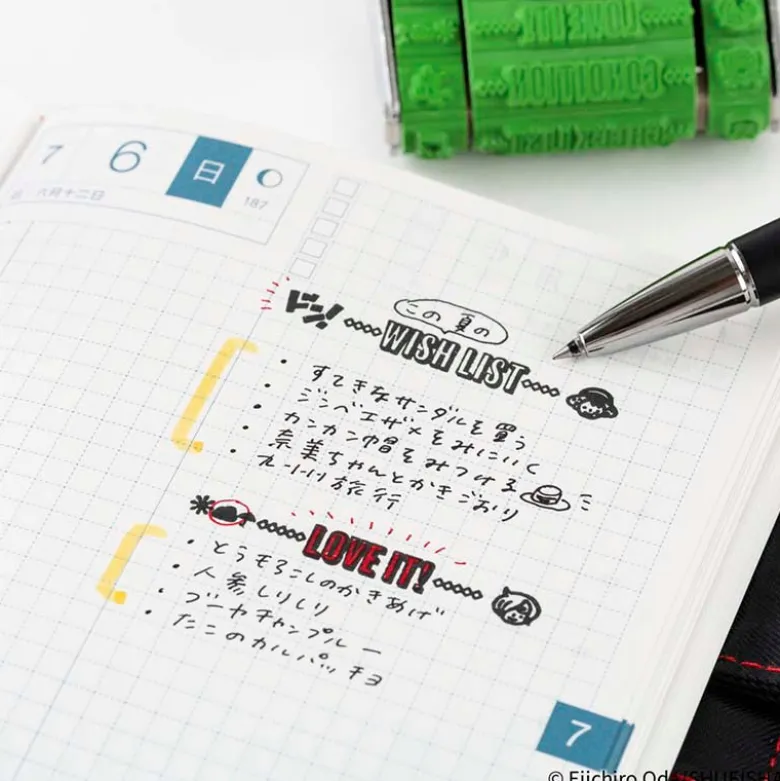 7 6 日
187
六月十二日
ドン!
この夏の
WISH LIST
・すてきなサンダルを買う
・ジンベエザメをみにいく
・カンカン帽をみつける
・奈美ちゃんとかきごおり
・九州旅行
LOVE IT!
・とうもろこしのかきあげ
・人参しりしり
・ゴーヤチャンプルー
・たこのカルパッチョ
7
© Eiichiro Oda/SHUEISHA